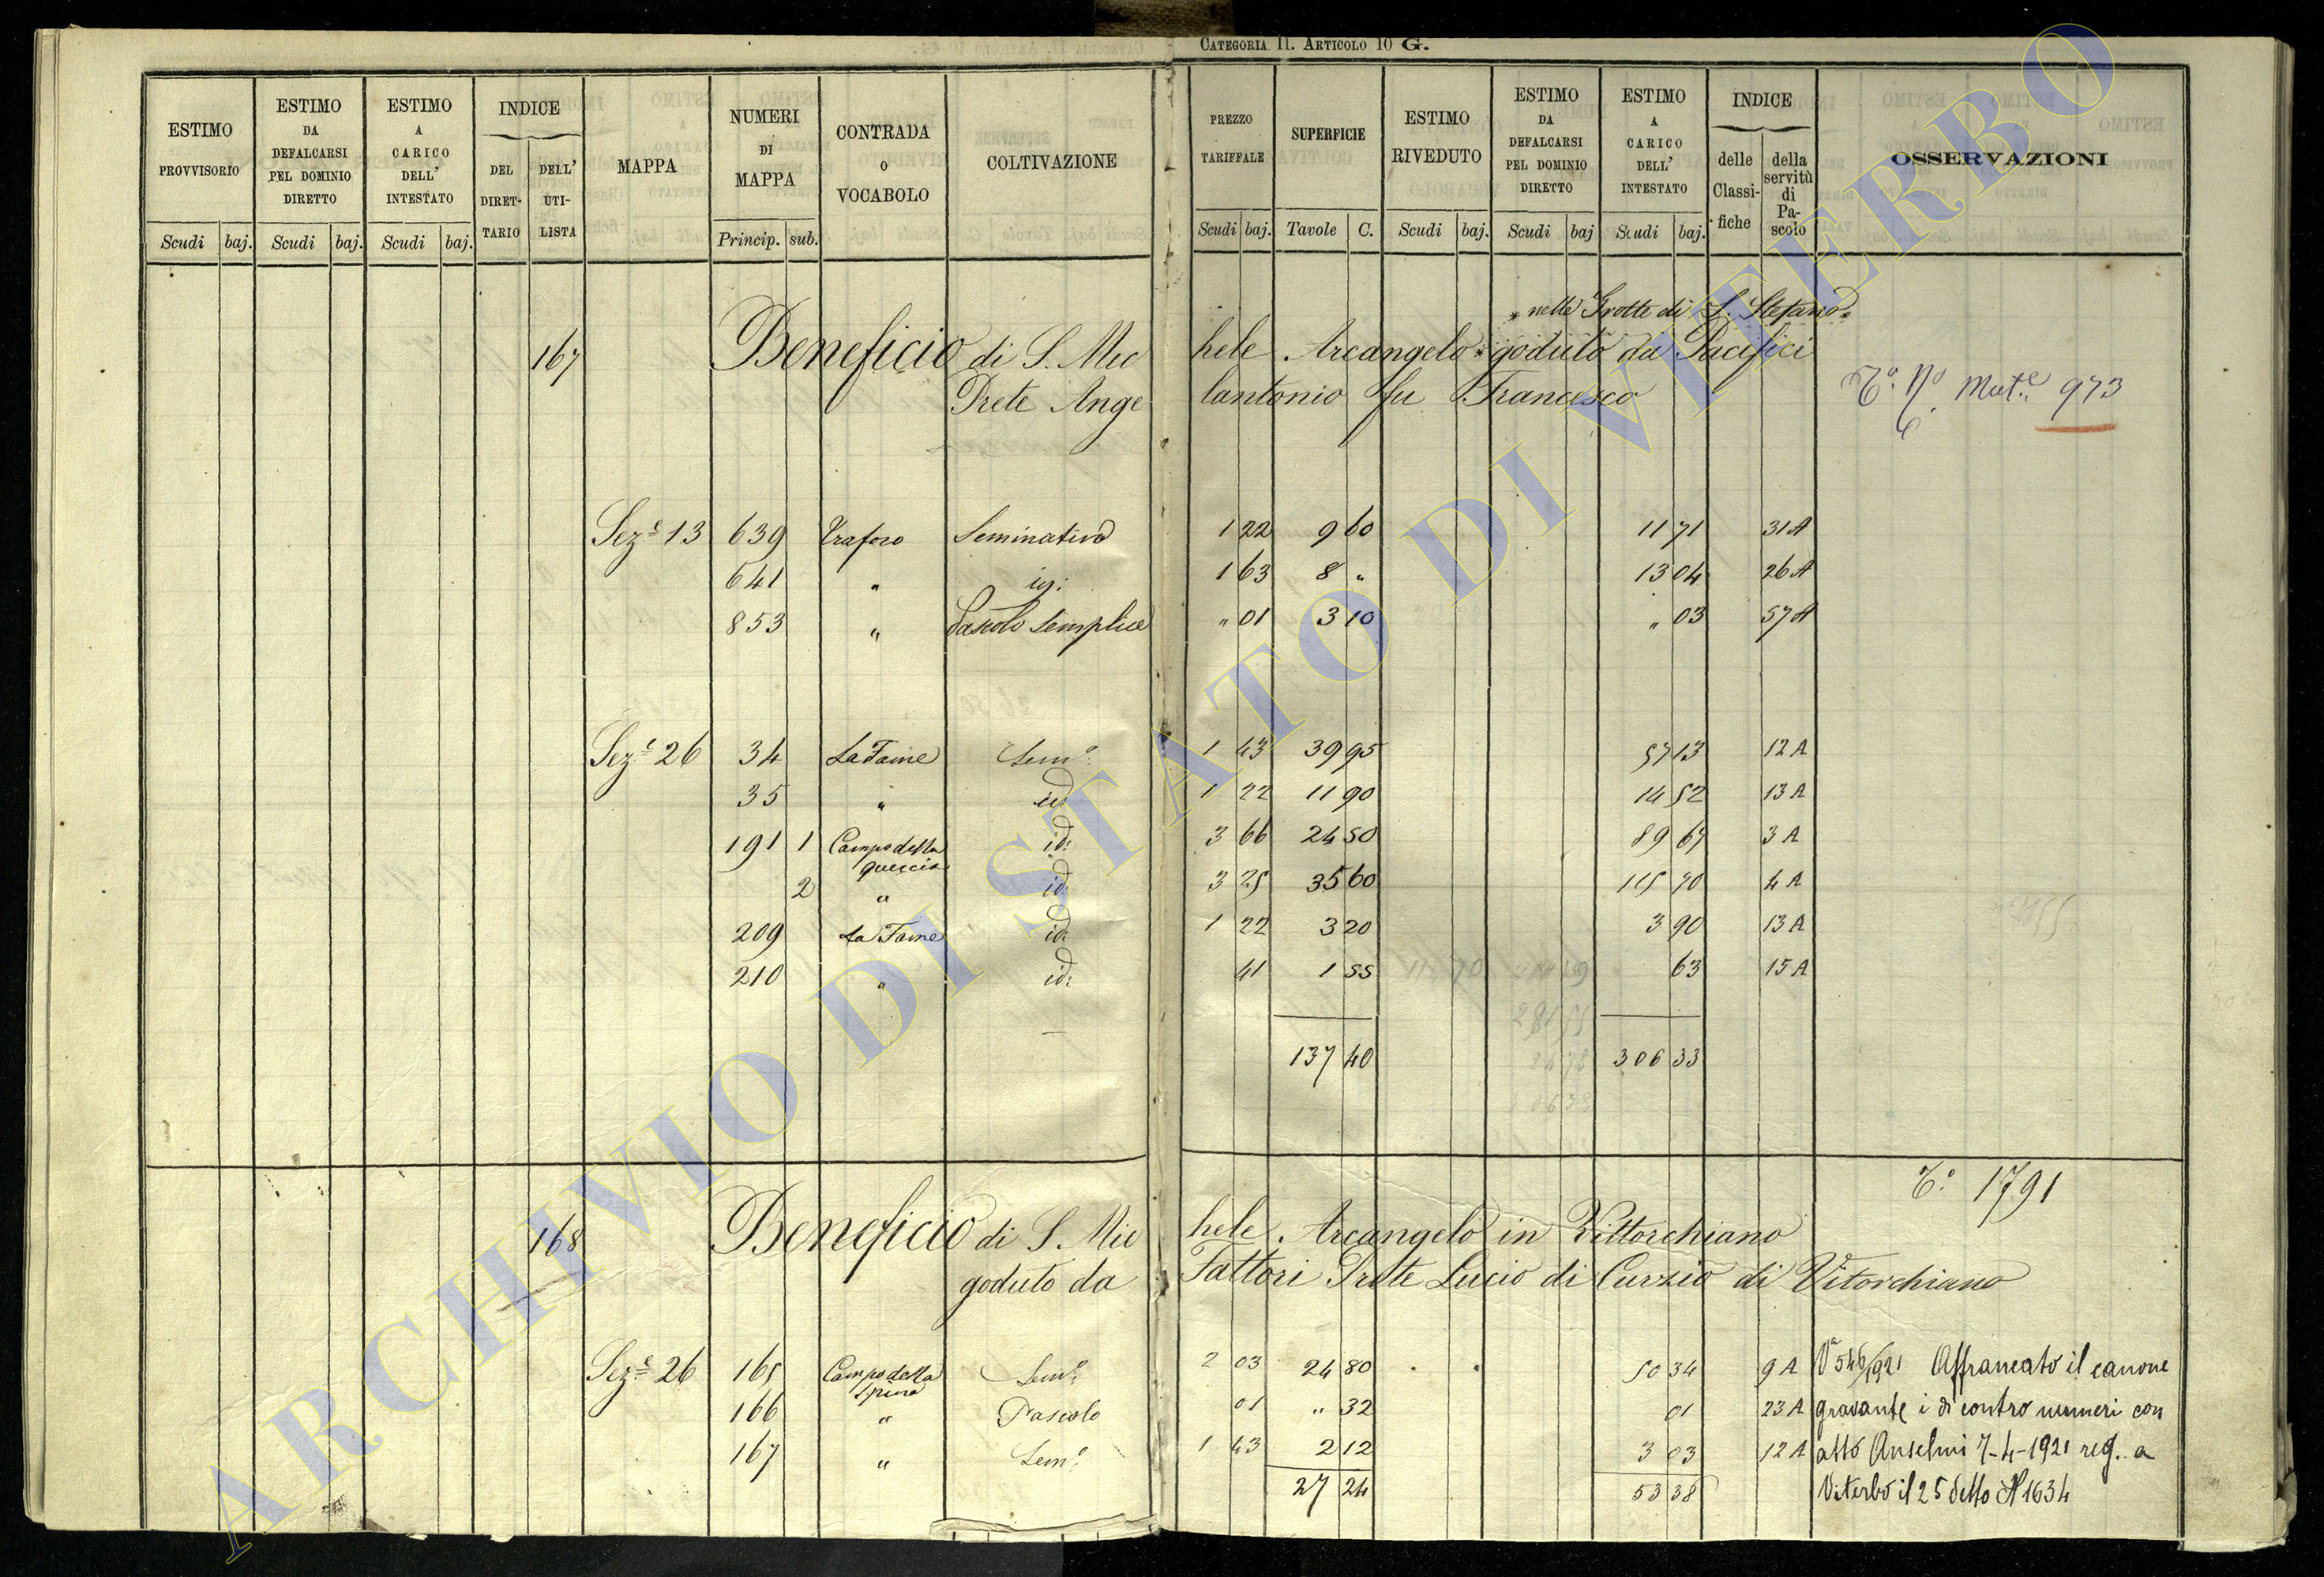 CATEGORIA II. ARTICOLO 10 G.
ESTIMO PROVVISORIO | ESTIMO DA DEFALCARSI PEL DOMINIO DIRETTO | ESTIMO A CARICO DELL' INTESTATO | INDICE DEL DIRETTARIO | DELL' UTILISTA | MAPPA | NUMERI DI MAPPA | CONTRADA O VOCABOLO | COLTIVAZIONE | PREZZO TARIFFALE | SUPERFICIE | ESTIMO RIVEDUTO | ESTIMO DA DEFALCARSI PEL DOMINIO DIRETTO | ESTIMO A CARICO DELL' INTESTATO | INDICE delle Classifiche | della servitù di Pascolo | OSSERVAZIONI
Scudi baj. Scudi baj. Scudi baj. Princip. sub. Scudi baj. Tavole C. Scudi baj. Scudi baj Scudi baj.
* nelle Grotte di S. Stefano *
167 Beneficio di S. Michele Arcangelo * goduto da Pacifici
Prete Angelantonio fu Francesco
Mut.e 973
Sez.e 13 639 Trafoso Seminativo 1 22 9 60 11 71 31 A
641 " id: 1 63 8 " 13 04 26 A
853 " Pascolo Semplice " 01 3 10 " 03 57 A
Sez.e 26 34 La Faine Sem.o 1 43 39 95 57 13 12 A
35 " id: 1 22 11 90 14 52 13 A
191 1 Campo della quercia id: 3 66 24 50 89 67 3 A
2 " id: 3 25 35 60 115 70 4 A
209 La Faine id: 1 22 3 20 3 90 13 A
210 " id: 41 1 55 63 15 A
137 40 306 33
T.o 1791
168 Beneficio di S. Michele Arcangelo in Vittorchiano
goduto da Fattori Prete Lucio di Curzio di Vitorchiano
Sez.e 26 165 Campo della Spina Sem.o 2 03 24 80 50 34 9 A Va 546/921 Affrancato il canone
166 " Pascolo 01 " 32 01 23 A gravante i di contro numeri con
167 " Sem.o 1 43 2 12 3 03 12 A atto Anselmi 7-4-1921 reg. a
27 24 53 38 Viterbo il 25 detto N 1634
ARCHIVIO DI STATO DI VITERBO